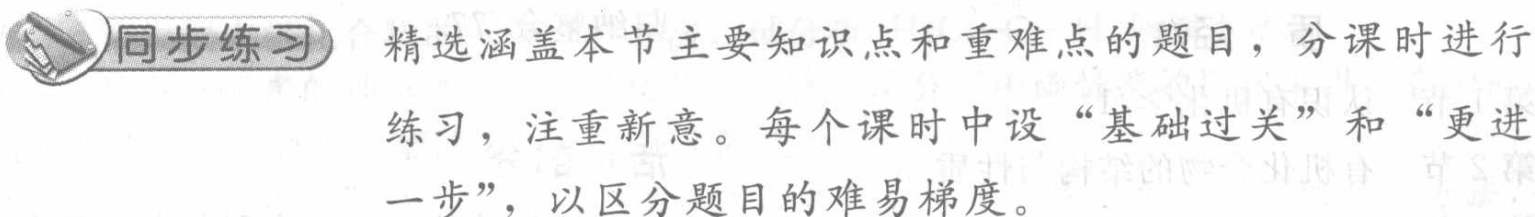 同步练习 精选涵盖本节主要知识点和重难点的题目，分课时进行
练习，注重新意。每个课时中设“基础过关”和“更进
一步”，以区分题目的难易梯度。